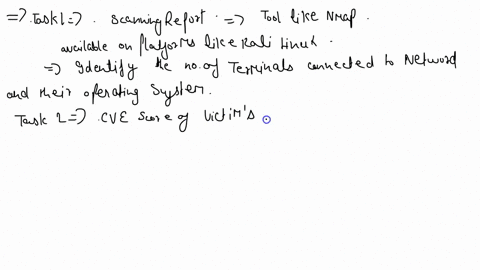 => Task1 => . Scanning Report => Tool like Nmap .
available on platforms like Kali Linux .
=> Identify the no. of Terminals connected to Network
and their operating System .
Task 2 => . CVE Score of Victim's